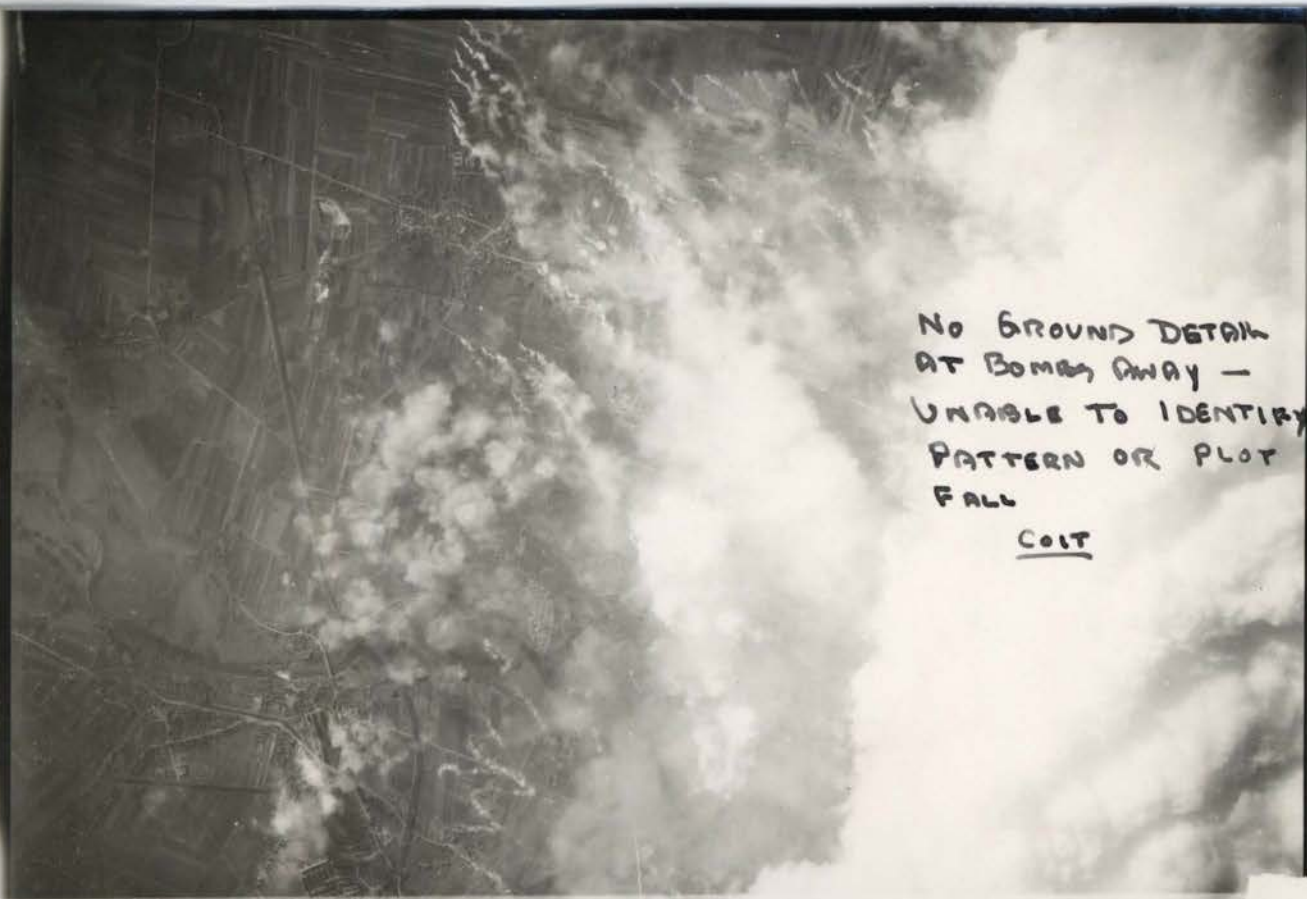 NO GROUND DETAIL
AT BOMBS AWAY —
UNABLE TO IDENTIFY
PATTERN OR PLOT
FALL
COIT